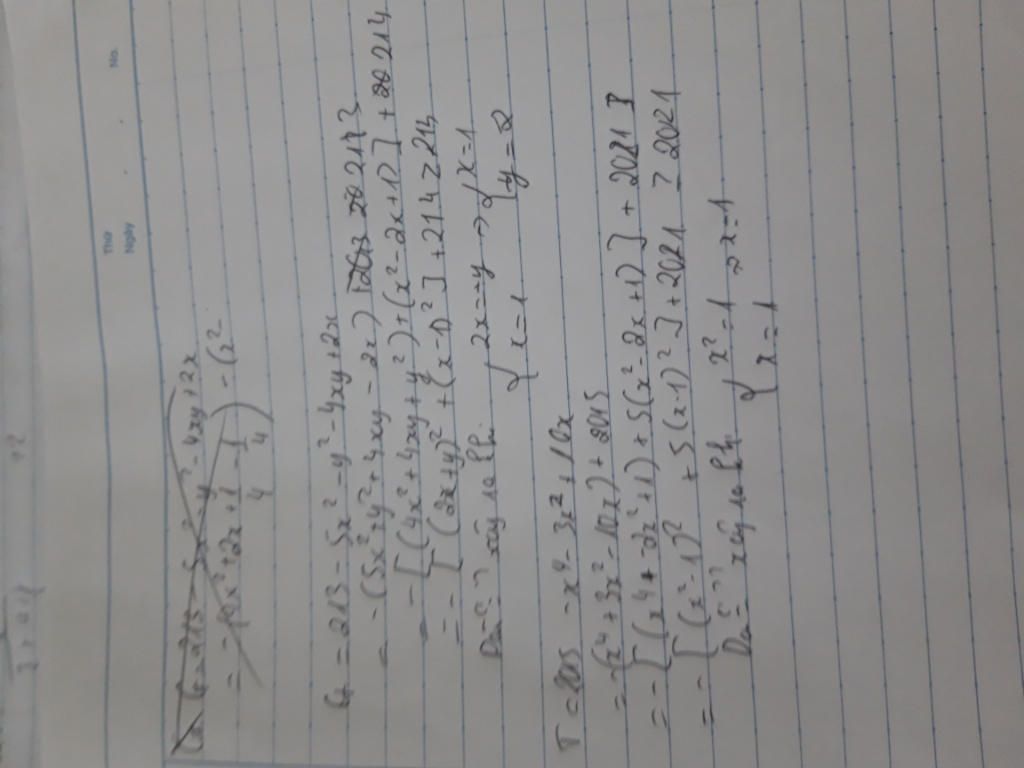 Thứ
Ngày
No.
G = 213 - 5x² - y² - 4xy + 2x
G = 213 - 5x² - y² - 4xy + 2x
= -(5x² + y² + 4xy - 2x) 213
= -[(4x² + 4xy + y²) + (x² - 2x + 1)] + 214
= -[(2x + y)² + (x - 1)²] + 214 ≥ 214
Dấ "=" xảy ra khi { 2x = -y x = 1 => { x = 1 y = 2
T = 2015 - x⁴ - 3x² + 10x
= -(x⁴ + 3x² - 10x) + 2015
= -[(x⁴ - 2x² + 1) + 5(x² - 2x + 1)] + 2021
= -[(x² - 1)² + 5(x - 1)²] + 2021 ≥ 2021
Dấ "=" xảy ra khi { x² = 1 x = 1 => x = 1